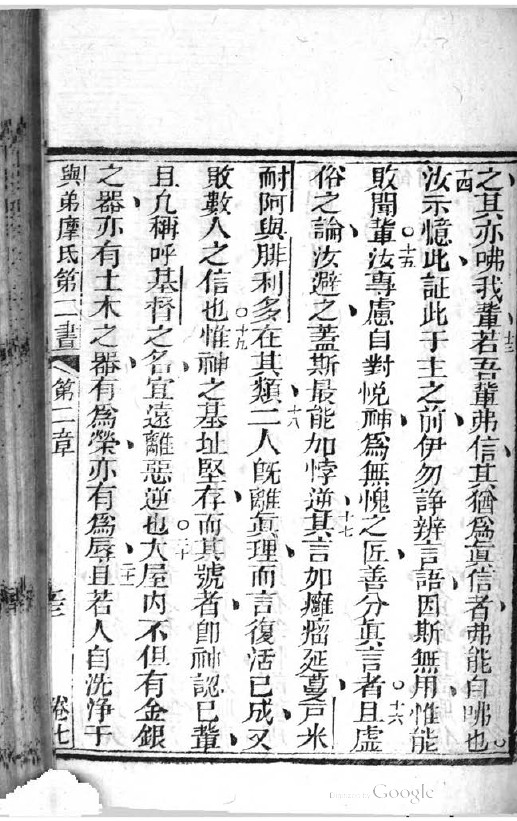 之其亦咈我輩若吾輩弗信其猶為眞信者弗能自咈也
十四汝示憶此証此于主之前伊勿諍辨言語因斯無用惟能
敗聞輩汝專慮自對悅神為無愧之匠善分眞言者且虛
俗之論汝避之葢斯最能加悖逆其言如癰瘤延蔓戸米
耐阿與腓利多在其類二人旣離眞理而言復活已成又
敗數人之信也惟神之基址堅存而其號者卽神認已輩
且凢稱呼基督之名宜遠離惡逆也大屋內不但有金銀
之器亦有土木之器有為榮亦有為辱且若人自洗浄于
與弟摩氏第二書 第二章 卷七
十三
十五
十六
十七
十八
十九
二十
二十
Google